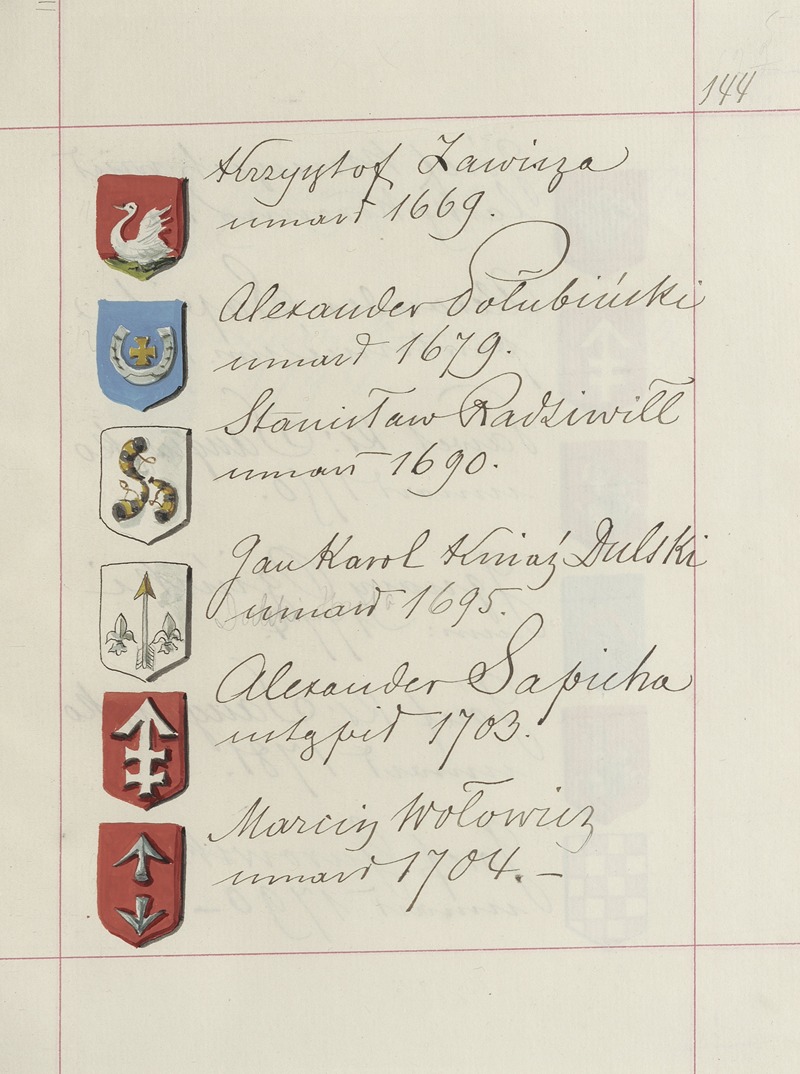 144
Krzysztof Zawisza
umarł 1669.
Alexander Połubiński
umarł 1679.
Stanisław Radziwiłł
umarł 1690.
Jan Karol Kniaź Dolski
umarł 1695.
Alexander Sapieha
ustąpił 1703.
Marcin Wołowicz
umarł 1704. —